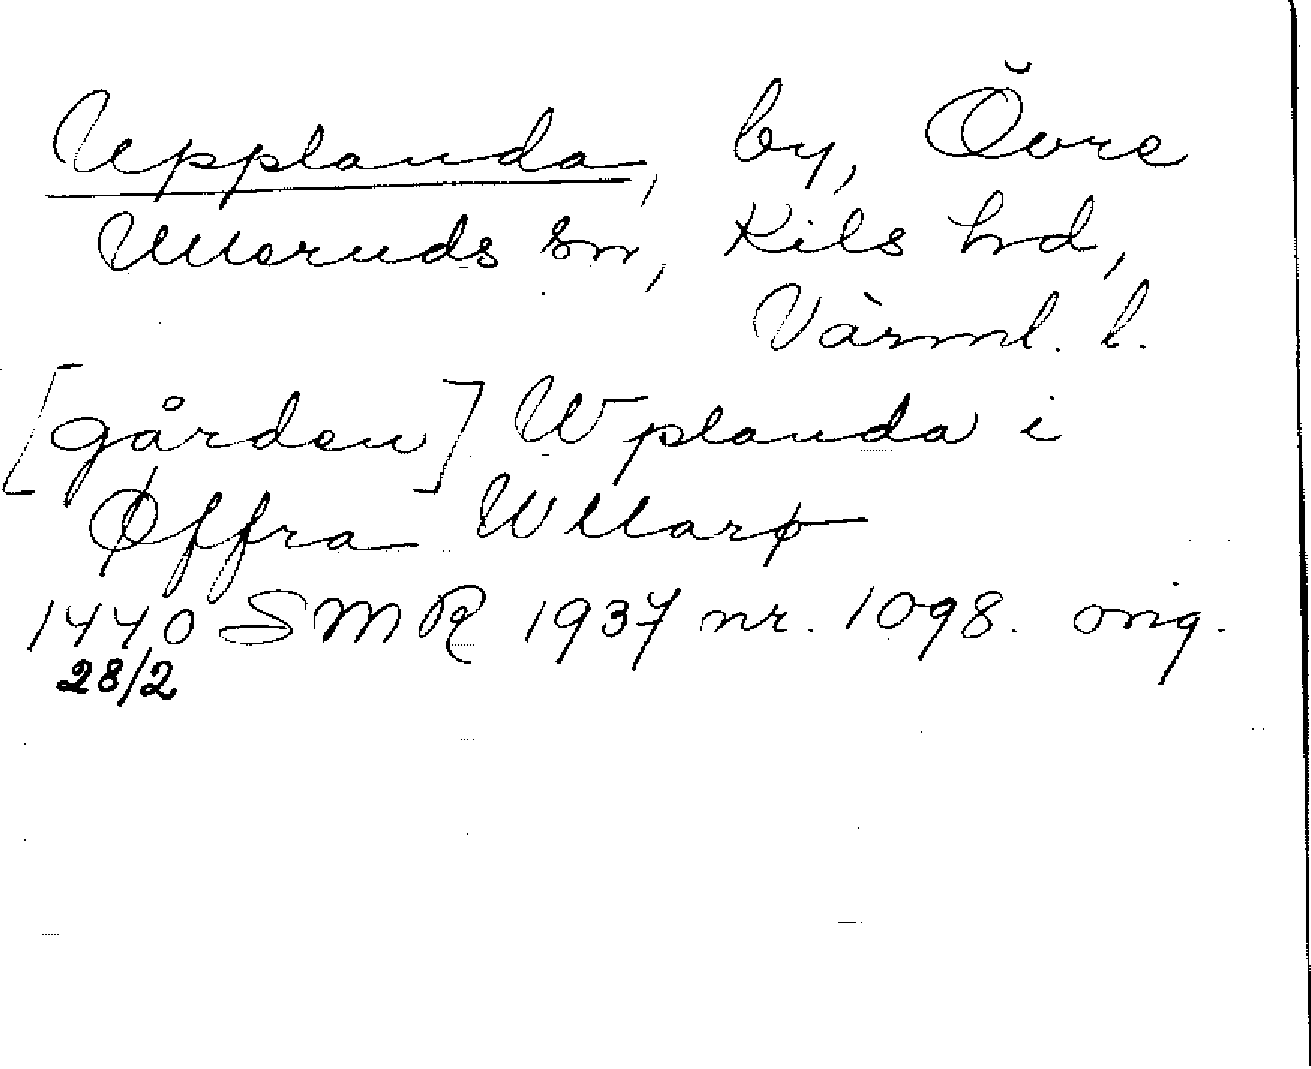 Upplanda, by, Övre
Ulleruds sn, Kils hd,
Värml. l.
[gården] Wplanda i
Øffra Wllarø
1440 SMR 1937 nr. 1098. orig.
28/2